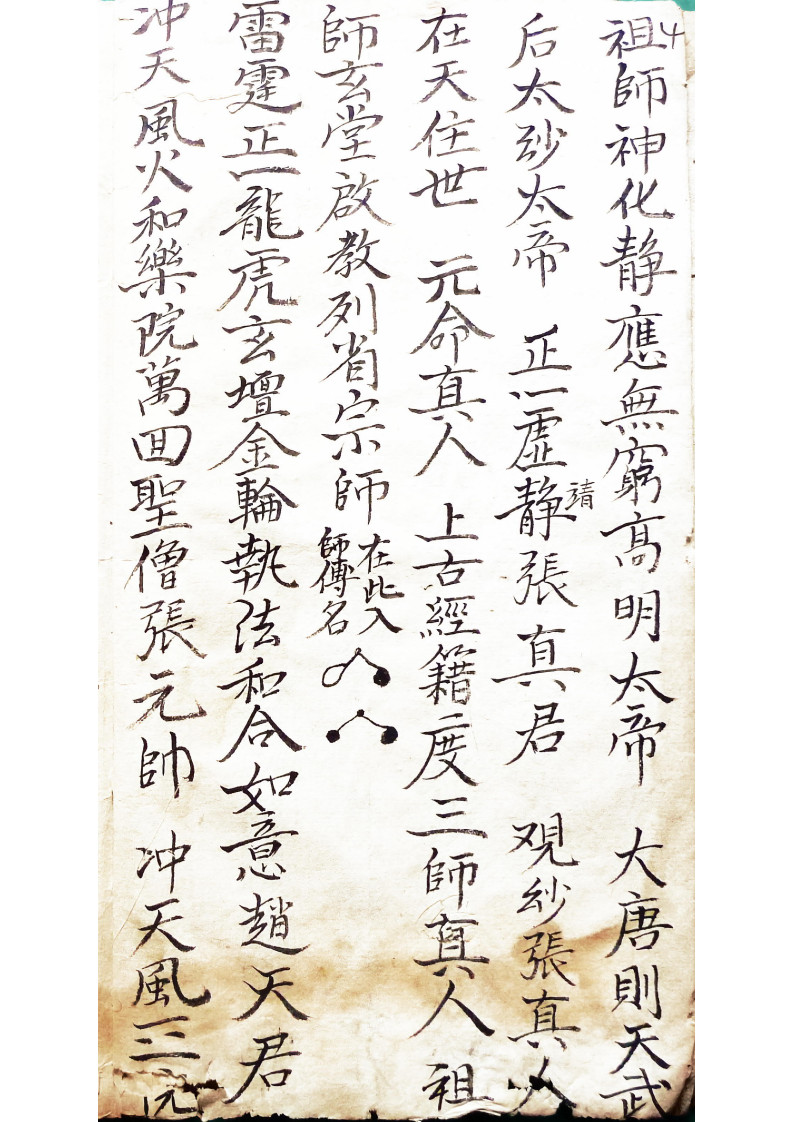 4
祖師神化静應無窮高明太帝 大唐則天武
后太玅太帝 正一虛静張真君 观玅張真人
靖
在天住世 元命真人 上古經籍度三師真人 祖
師玄堂啟教列省宗師
在此入
師傳名
雷霆正一龍虎玄壇金輪執法和合如意趙天君
冲天風火和樂院萬回聖僧張元帥 冲天風三